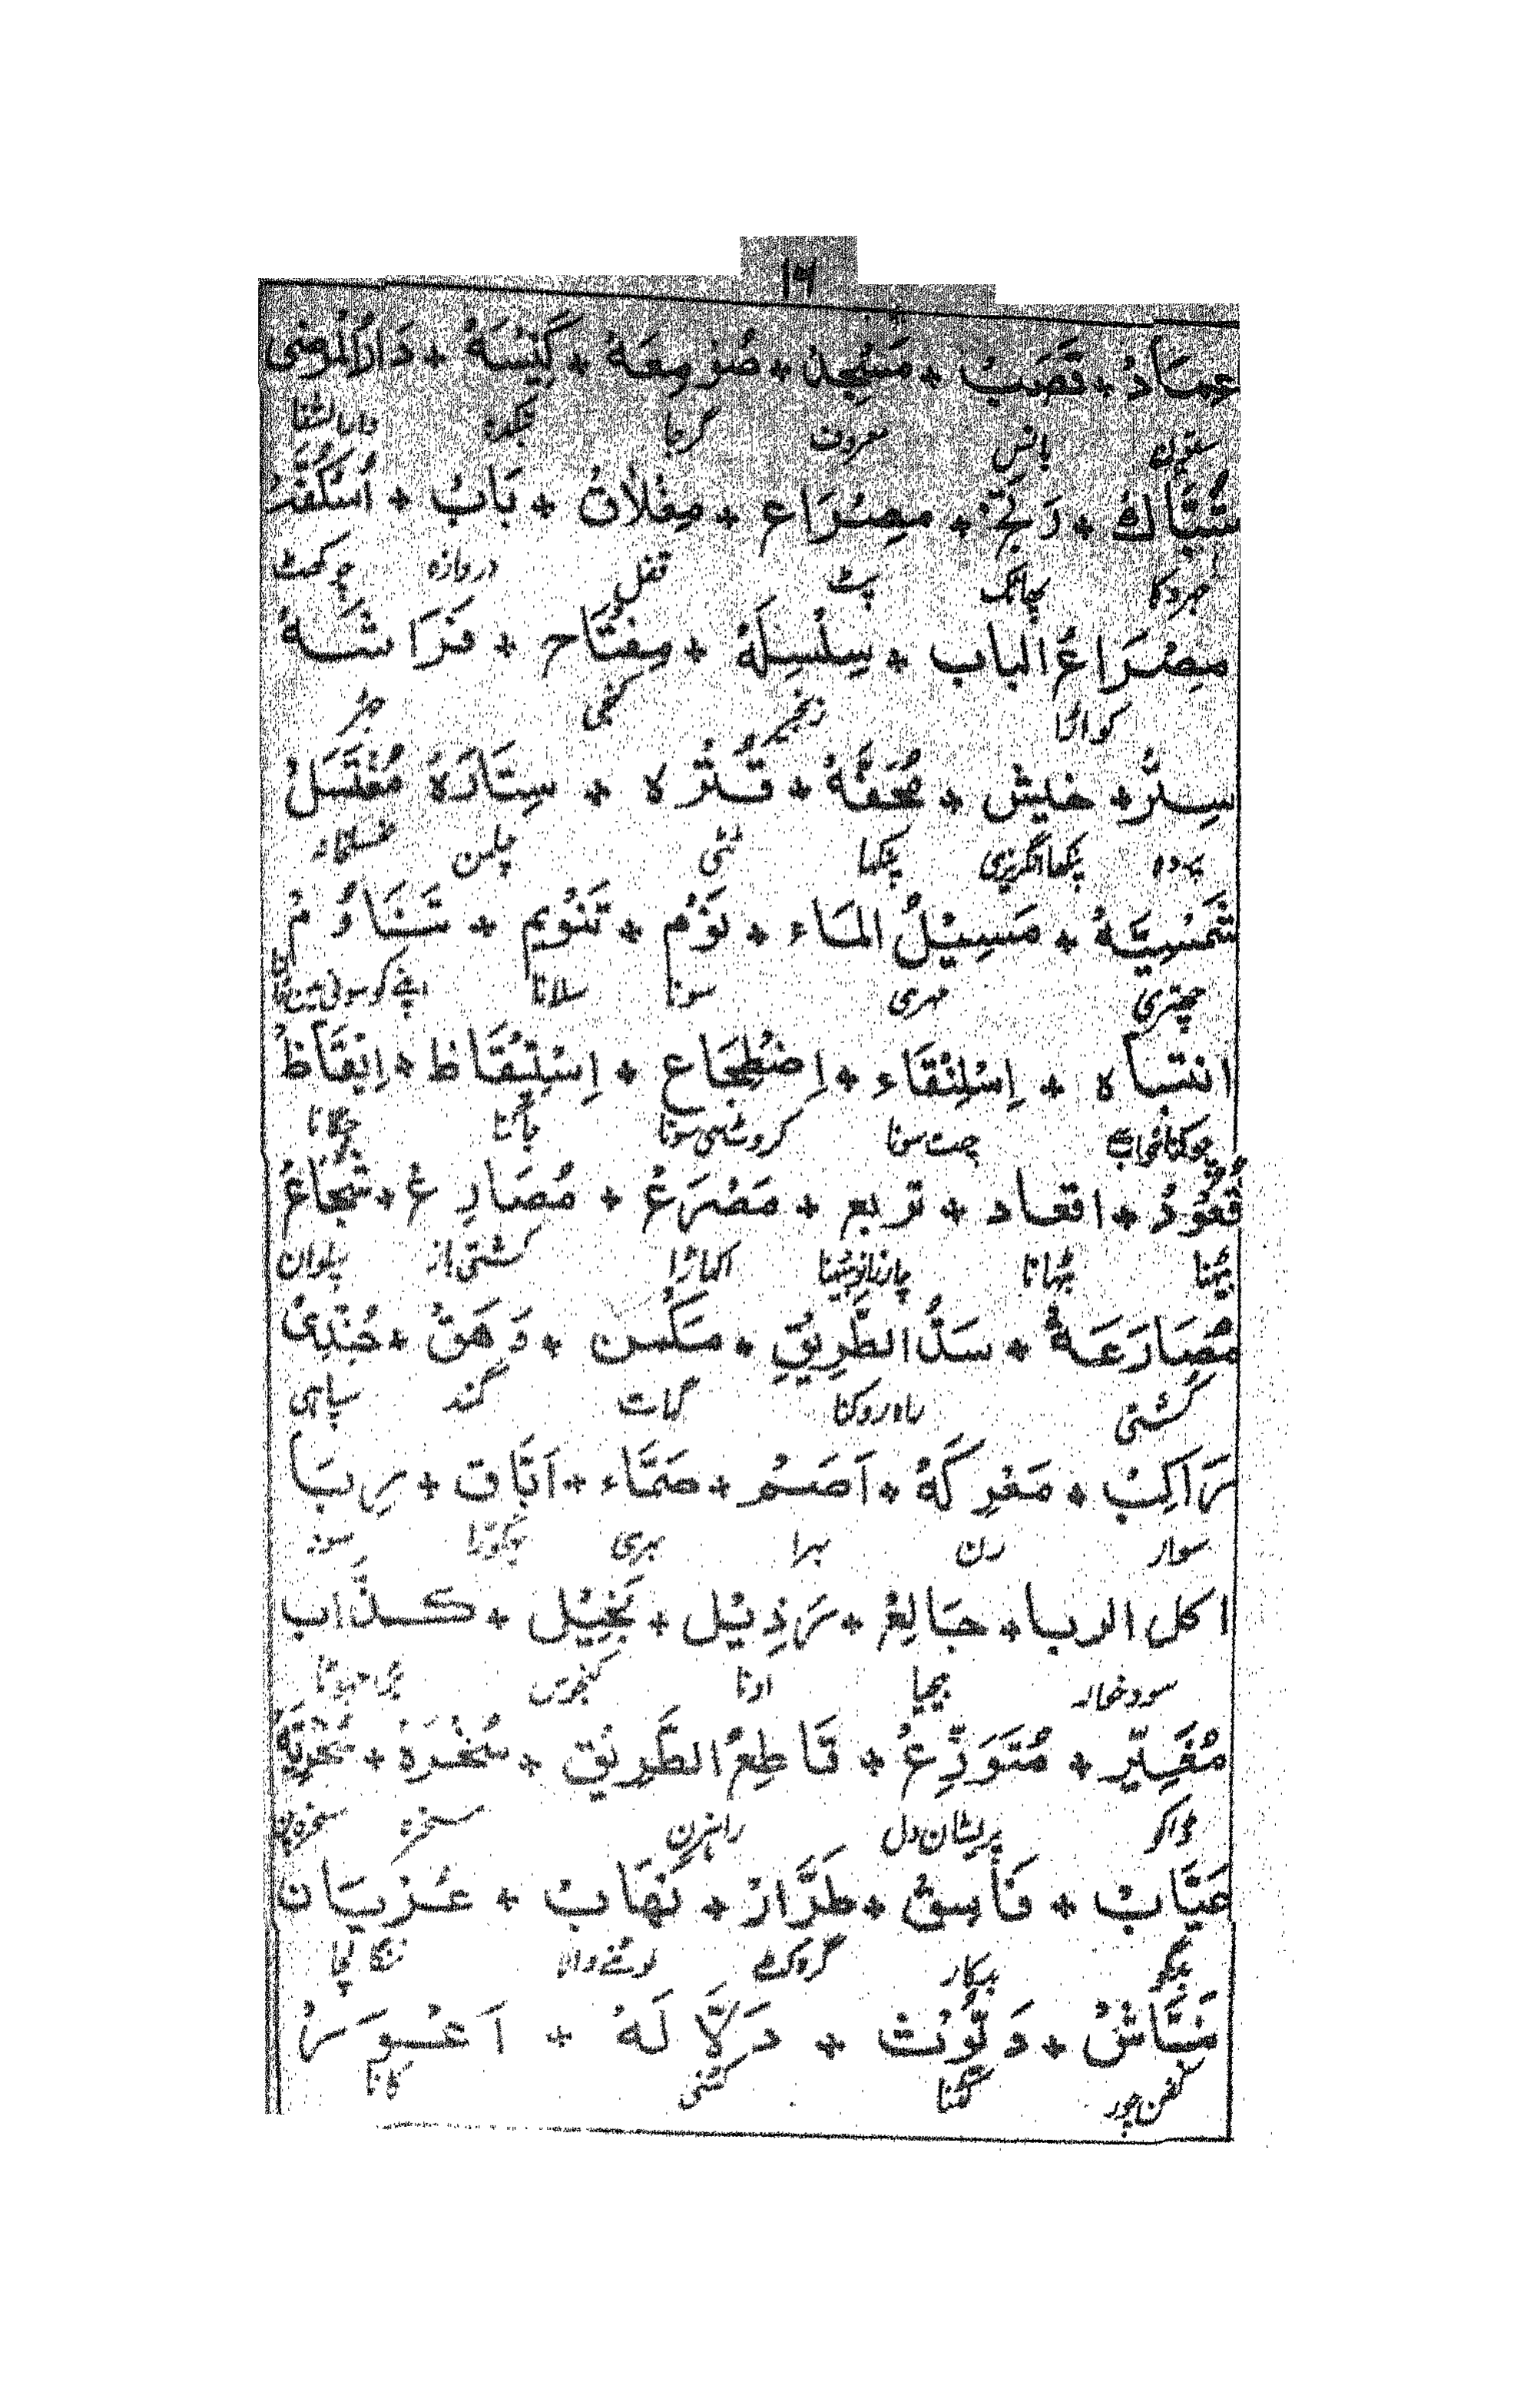 ۱۶
عِمَادٌ + قَصَبٌ + مَسْجِدٌ + صُوْمِعَةٌ + كَنِيْسَةٌ + دَارُالْمَرْضٰی
ستون بانس معروف گرجا بتکدہ دارالشفا
شُبَّاكٌ + رَتَجٌ + مِصْرَاع + مِغْلَاقٌ + بَابٌ + اُسْكُفَّۃٌ
جھروکا پھاٹک پٹ قفل دروازہ چوکھٹ
مِصْرَاعُ الباب + سِلْسِلَةٌ + مِفْتَاح + فَرَاشَةٌ
کواڑا زنجیر کنجی
سِتْرٌ + خَیْش + مُحَفَّةٌ + قُتْرَہ + سِتَارَةٌ مُغْتَسَلٌ
پردہ پنکھا انگریزی پنکھا ٹٹی چلمن غسلخانہ
شَمْسِيَّةٌ + مَسِيْلُ المَاء + نَوْم + تَنْوِیم + تَنَاوُمٌ
چھتری مہری سونا سلانا
انتباه + اِسْلِنْقَاء + اِضْطِجَاع + اِسْتِیْقَاظ + اِیْقَاظٌ
چت سونا کروٹ سے سونا جاگنا جگانا
قُعُوْدٌ + اقعاد + تربع + مَصْرَعٌ + مُصَارِعٌ + شُجَاعٌ
بیٹھنا بٹھانا چار زانو بیٹھنا اکھاڑا کشتی باز پہلوان
مُصَارَعَةٌ + سَدُّ الطَّرِيْقِ + مَكْمن + وَهَقٌ + جُنْدِیٌّ
کشتی راہ روکنا گھات کمند سپاہی
رَاكِبٌ + مَعْرِكَةٌ + اَصَمُّ + صَمَّاء + اَبَّاق + رِبَا
سوار رن بہرا بہری بھگوڑا سود
اکل الربا + جَالِعٌ + رَذِيْل + بَخِيْل + كَذَّاب
سودخوار بیحیا ادنا کنجوس بڑا جھوٹا
مُغَيِّر + مُتَوَزِّعٌ + قَاطِعُ الطَّرِيْق + سُخْرَةٌ + سُخْرِيَّةٌ
ڈاکو پریشان دل راہزن مسخرہ مسخرہ پن
عَيَّابٌ + فَاسِقٌ + طَرَّارٌ + نَهَّابٌ + عُرْيَان
بدگو بدکار گرہ کٹ لوٹنے والا ننگا لچا
نَبَّاشٌ + دَيُّوْث + دَلَّالَةٌ + اَعْوَرٌ
کفن چور کٹنی کانا